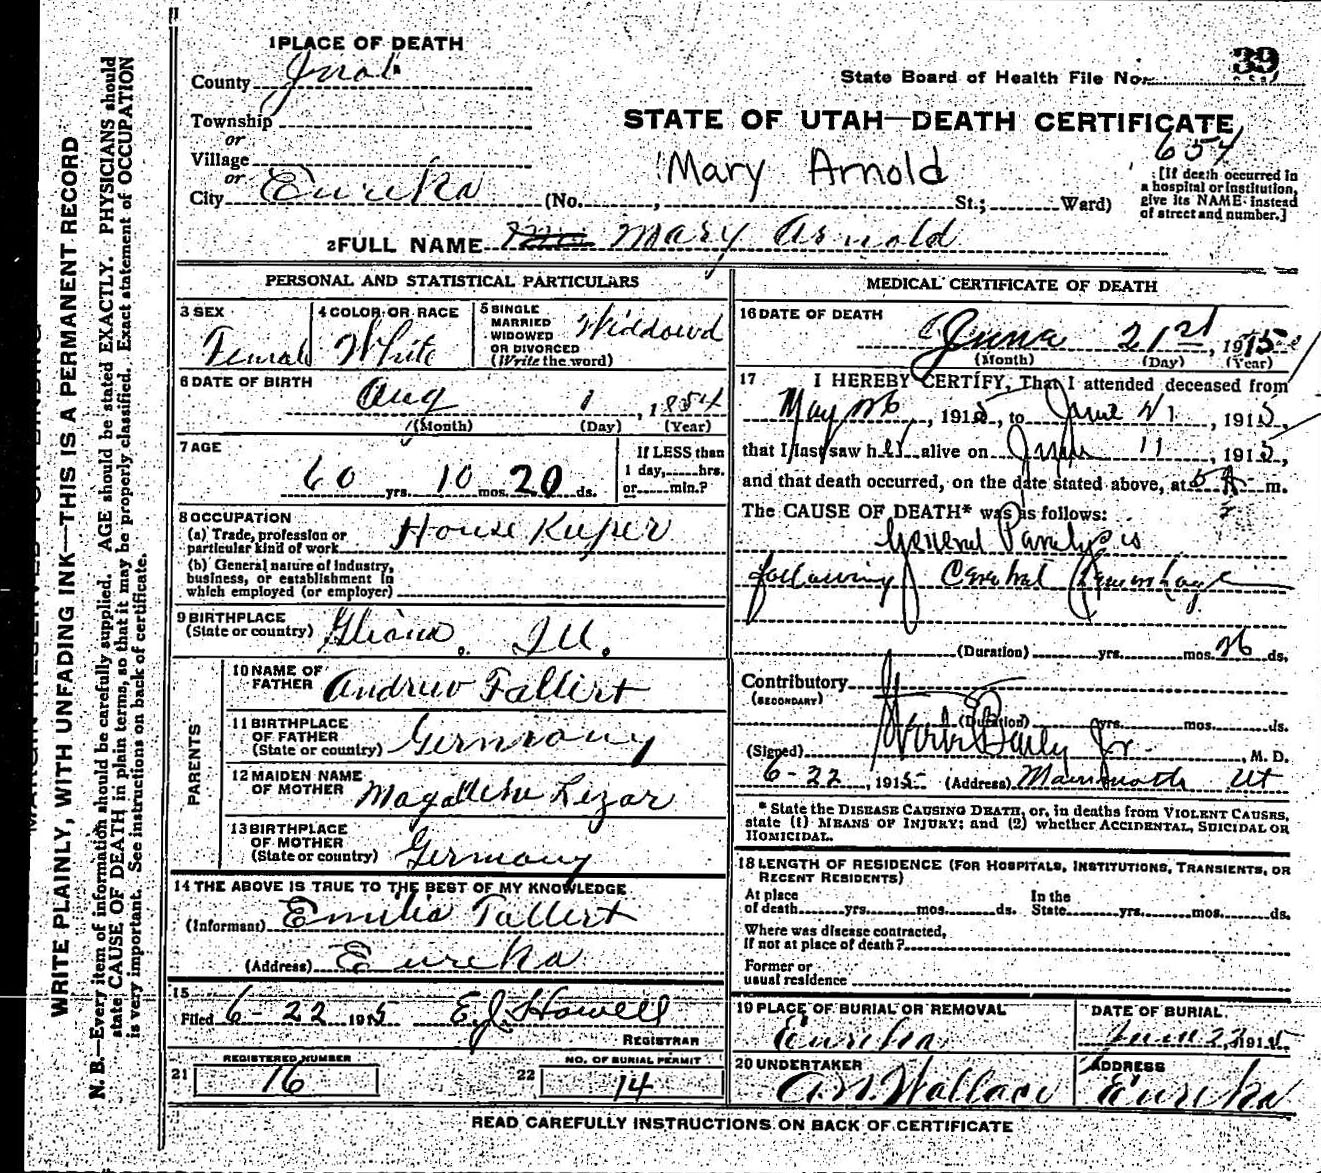 1 PLACE OF DEATH
County Juab
Township
or
Village
or
City Eureka (No. , St.; Ward)
State Board of Health File No. 39
STATE OF UTAH—DEATH CERTIFICATE
654
Mary Arnold
[If death occurred in
a hospital or institution,
give its NAME instead
of street and number.]
2 FULL NAME Mary Arnold
PERSONAL AND STATISTICAL PARTICULARS
3 SEX Femal
4 COLOR OR RACE White
5 SINGLE
MARRIED
WIDOWED
OR DIVORCED
(Write the word) Widdowd
6 DATE OF BIRTH
Aug 1, 1854
(Month) (Day) (Year)
7 AGE
60 yrs. 10 mos. 20 ds.
If LESS than
1 day, hrs.
or min.?
8 OCCUPATION
(a) Trade, profession or
particular kind of work House Keeper
(b) General nature of industry,
business, or establishment in
which employed (or employer)
9 BIRTHPLACE
(State or country) Ill.
PARENTS
10 NAME OF
FATHER Andrew Tallert
11 BIRTHPLACE
OF FATHER
(State or country) Germany
12 MAIDEN NAME
OF MOTHER Magdlena Lezar
13 BIRTHPLACE
OF MOTHER
(State or country) Germany
14 THE ABOVE IS TRUE TO THE BEST OF MY KNOWLEDGE
(Informant) Emilia Tallert
(Address) Eureka
15
Filed 6-22 1915 E.J. Howell
REGISTRAR
REGISTERED NUMBER
21 16
NO. OF BURIAL PERMIT
22 14
MEDICAL CERTIFICATE OF DEATH
16 DATE OF DEATH
June 21st, 1915
(Month) (Day) (Year)
17 I HEREBY CERTIFY, That I attended deceased from
May 26, 1915, to June 21, 1915
that I last saw her alive on June 11, 1915,
and that death occurred, on the date stated above, at 5 A m.
The CAUSE OF DEATH* was as follows:
General Paralysis
following Cerebral Hemorrhage
(Duration) yrs. mos. 26 ds.
Contributory
(SECONDARY)
(Duration) yrs. mos. ds.
(Signed) Steele Bailey Jr., M. D.
6-22, 1915 (Address) Mammoth Ut
* State the DISEASE CAUSING DEATH, or, in deaths from VIOLENT CAUSES,
state (1) MEANS OF INJURY; and (2) whether ACCIDENTAL, SUICIDAL OR
HOMICIDAL.
18 LENGTH OF RESIDENCE (FOR HOSPITALS, INSTITUTIONS, TRANSIENTS, OR
RECENT RESIDENTS)
At place
of death yrs. mos. ds.
In the
State yrs. mos. ds.
Where was disease contracted,
if not at place of death?
Former or
usual residence
19 PLACE OF BURIAL OR REMOVAL
Eureka
DATE OF BURIAL
June 23, 1915
20 UNDERTAKER
A.N. Wallace
ADDRESS
Eureka
READ CAREFULLY INSTRUCTIONS ON BACK OF CERTIFICATE
WRITE PLAINLY, WITH UNFADING INK—THIS IS A PERMANENT RECORD
N. B.—Every item of information should be carefully supplied. AGE should be stated EXACTLY. PHYSICIANS should
state CAUSE OF DEATH in plain terms, so that it may be properly classified. Exact statement of OCCUPATION
is very important. See instructions on back of certificate.